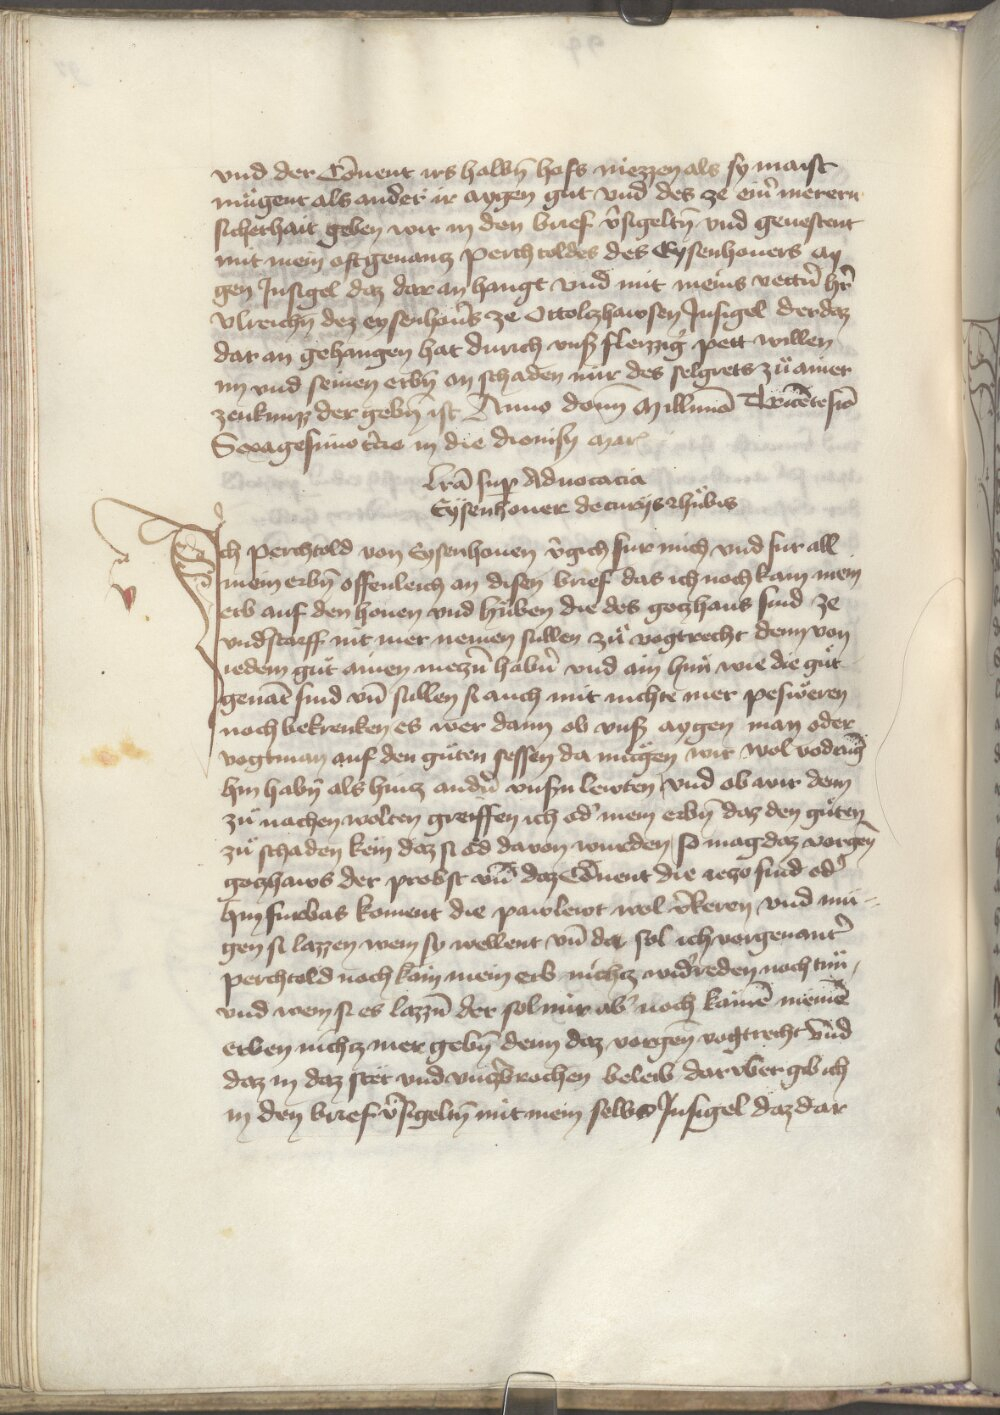 vnd der Co̅uent irs halbn̅ hofs niezzen als sy maist
mügent als ander ir aygen gut vnd des ze ein̅ merern
sicherhait geben wir in den brief v̉sigeltn̅ vnd geuestent
mit mein oftgenantz Perchtoldes des Eysenhouers ay
gen Insigel daz dar an hangt vnd mit meins vettn̅ hr̅
Vlreichn̅ dez eysenhou̅s ze Ottoltzhawsen Insigel der daz
dar an gehangen hat durich vnsß fleizzig pett willen
im vnd seinen erbn̅ an schaden nur des selgrets zü ainer
zeuknuzz der gebn̅ ist Anno domi̅ Millimo̅ Tricentesio̅
Sexagesimo t̉cio in die dionisy mar
Lr̅a sup Aduocacia
Eÿsenhouer de curÿs z hůbis
Ich Perchtold von Eysenhouen v̉gich fur mich vnd fur all
mein erbn̅ offenleich an disen brief das ich noch kain mein
erb auf den houen vnd hůben die des gotzhaus sind ze
vndstorff nit mer nemen sullen zů vogtrecht denn von
iedem gůt ainen metzn̅ habn̉ vnd ain hůn wie die gůt
genāt sind vn̅ sullen si auch mit nichte mer peswëren
noch bekrenken es wer dann ob vnsß aygen man oder
vogtman auf den güten sessen da mügen wir wol vodrūg
hin habn̅ als hintz andn̉ vnsn̉ lewten vnd ob wir dem
zü nachen wolten greiffen ich od̉ mein erbn̅ daz den güten
zü schaden kēm daz si öd dauon wurden so mag daz vorgen̅
gotzhaws der probst vn̅ daz Co̅uent die ietzo sind od̉
hin furbas koment die pawlewt wol v̉keren vnd mü
gen si lazzen wem sy wellent vn̅ da sol ich vorgenant̉
Perchtold noch kain mein erb nichtz wid̉reden noch tun
vnd wem si es lazzn̅ der sol mir ab̉ noch kaine̅ meine̅
erben nichtz mer gebn̅ denn daz vorgen̅ vogtrecht vnd
daz in daz stët vnd vnzebrochen beleib darvber gib ich
in den brief v̉sigeltn̅ mit mein selbs Insigel daz dar